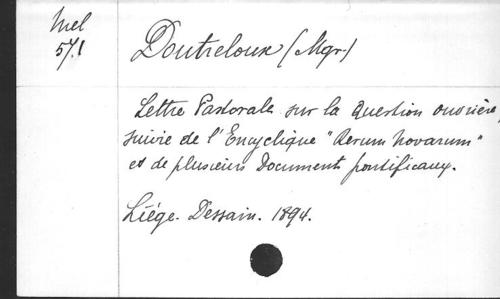 Mel
57.1
Doutreloux (Mgr.)
Lettre Pastorale sur la Question ouvrière,
suivie de l'Encyclique "Rerum Novarum"
et de plusieurs Documents pontificaux.
Liége. Dessain. 1894.